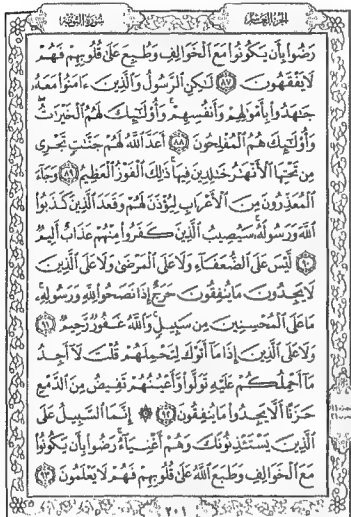 الجزء العاشر سورة التوبة
رَضُوا بِأَن يَكُونُوا مَعَ الْخَوَالِفِ وَطُبِعَ عَلَىٰ قُلُوبِهِمْ فَهُمْ
لَا يَفْقَهُونَ ﴿٨٧﴾ لَٰكِنِ الرَّسُولُ وَالَّذِينَ ءَامَنُوا مَعَهُ
جَٰهَدُوا بِأَمْوَٰلِهِمْ وَأَنفُسِهِمْ ۚ وَأُولَٰئِكَ لَهُمُ الْخَيْرَٰتُ ۖ
وَأُولَٰئِكَ هُمُ الْمُفْلِحُونَ ﴿٨٨﴾ أَعَدَّ اللَّهُ لَهُمْ جَنَّٰتٍ تَجْرِي
مِن تَحْتِهَا الْأَنْهَٰرُ خَٰلِدِينَ فِيهَا ۚ ذَٰلِكَ الْفَوْزُ الْعَظِيمُ ﴿٨٩﴾ وَجَاءَ
الْمُعَذِّرُونَ مِنَ الْأَعْرَابِ لِيُؤْذَنَ لَهُمْ وَقَعَدَ الَّذِينَ كَذَبُوا
اللَّهَ وَرَسُولَهُ ۚ سَيُصِيبُ الَّذِينَ كَفَرُوا مِنْهُمْ عَذَابٌ أَلِيمٌ
﴿٩٠﴾ لَّيْسَ عَلَى الضُّعَفَاءِ وَلَا عَلَى الْمَرْضَىٰ وَلَا عَلَى الَّذِينَ
لَا يَجِدُونَ مَا يُنفِقُونَ حَرَجٌ إِذَا نَصَحُوا لِلَّهِ وَرَسُولِهِ ۚ
مَا عَلَى الْمُحْسِنِينَ مِن سَبِيلٍ ۚ وَاللَّهُ غَفُورٌ رَّحِيمٌ ﴿٩١﴾
وَلَا عَلَى الَّذِينَ إِذَا مَا أَتَوْكَ لِتَحْمِلَهُمْ قُلْتَ لَا أَجِدُ
مَا أَحْمِلُكُمْ عَلَيْهِ تَوَلَّوا وَّأَعْيُنُهُمْ تَفِيضُ مِنَ الدَّمْعِ
حَزَنًا أَلَّا يَجِدُوا مَا يُنفِقُونَ ﴿٩٢﴾ ۞ إِنَّمَا السَّبِيلُ عَلَى
الَّذِينَ يَسْتَـْٔذِنُونَكَ وَهُمْ أَغْنِيَاءُ ۚ رَضُوا بِأَن يَكُونُوا
مَعَ الْخَوَالِفِ وَطَبَعَ اللَّهُ عَلَىٰ قُلُوبِهِمْ فَهُمْ لَا يَعْلَمُونَ ﴿٩٣﴾
٢٠١